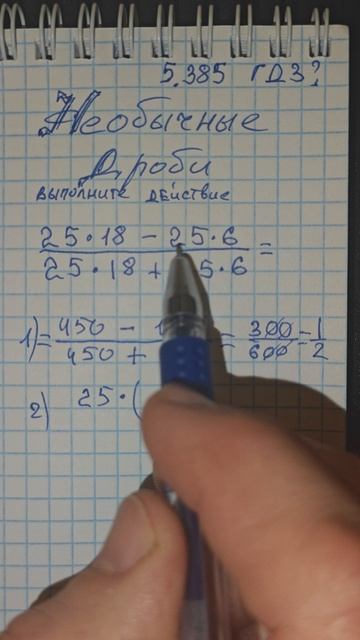 5.385 ГДЗ?
Необычные
Дроби
выполните действие
25·18 - 25·6 =
25·18 + 5·6
1) = 450 - = 300 = 1
450 + 600 2
2) 25·(